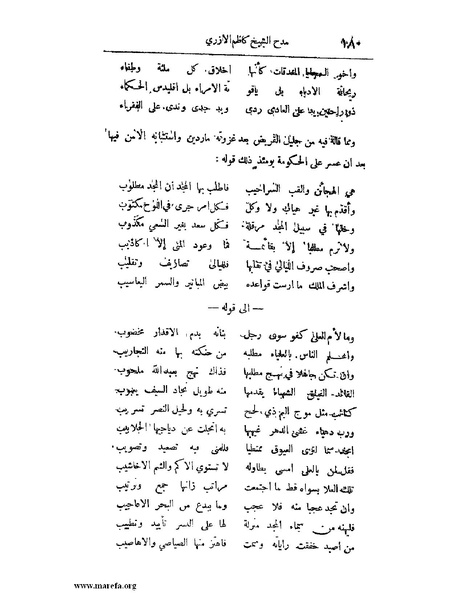 ١٠٨٠ مدح الشيخ كاظم الازري
وأخو السجايا المغدقات كأنها أخلاق كل ملثة وطفاء
ريحانة الادباء بل ياقو تة الامراء بل اقليدس الحكماء
ذو راحتين يد على العادي ردى ويد جدى وندى على الفقراء
ومما قاله فيه من جليل القريض بعد غزوته ماردين واستتبابه الأمن فيها
بعد ان عسر على الحكومة يومئذ ذلك قوله :
هي الهجائن والقب السراحيب فاطلب بها المجد ان المجد مطلوب
وأقدم بها غير هياب ولا وكل فكل امر جرى في اللوح مكتوب
وخلها في سبيل المجد مرقلة فكل سعد بغير السعي مكذوب
ولا ترم مطلبا إلا بقائمة فما وعود المنى إلا أكاذيب
واصحب صروف الليالي في تقلبها فلليالي تصاريف وتقليب
واشرف الملك ما ارست قواعده بيض المباتير والسمر اليعاسيب
— الى قوله —
وما لأم العلى كفو سوى رجل بنانه بدم الاقدار مخضوب
وأعلم الناس بالعلياء مطلبه من حنكته بها منه التجاريب
وان تكن جاهلا في نهج مطلبها فذاك نهج بعبد الله ملحوب
القائد الفيلق الشهباء يقدمها منه طويل نجاد السيف يعبوب
كتائب مثل موج اليم ذي لجج تسري به ولخيل النصر تسريب
ورب دهياء غشى الدهر غيهبها به انجلت عن دياجيها الجلابيب
امجد سما لذرى العيوق ممتطيا فللمنى فيه تصعيد وتصويب
فقل لمن بالعلى امسى يطاوله لا تستوي الاكم والشم الاخاشيب
تلك العلا بسواه قط ما اجتمعت مراتب زانها جمع وترتيب
وان تجد عجبا منه فلا عجب وما يبدع من البحر الاعاجيب
فليهنه من سماء المجد منزلة لها على النسر تأييد وتطنيب
من أصيد خفقت راياته وسمت فاهتز منها الصياصي والاهاضيب
www.marefa.org